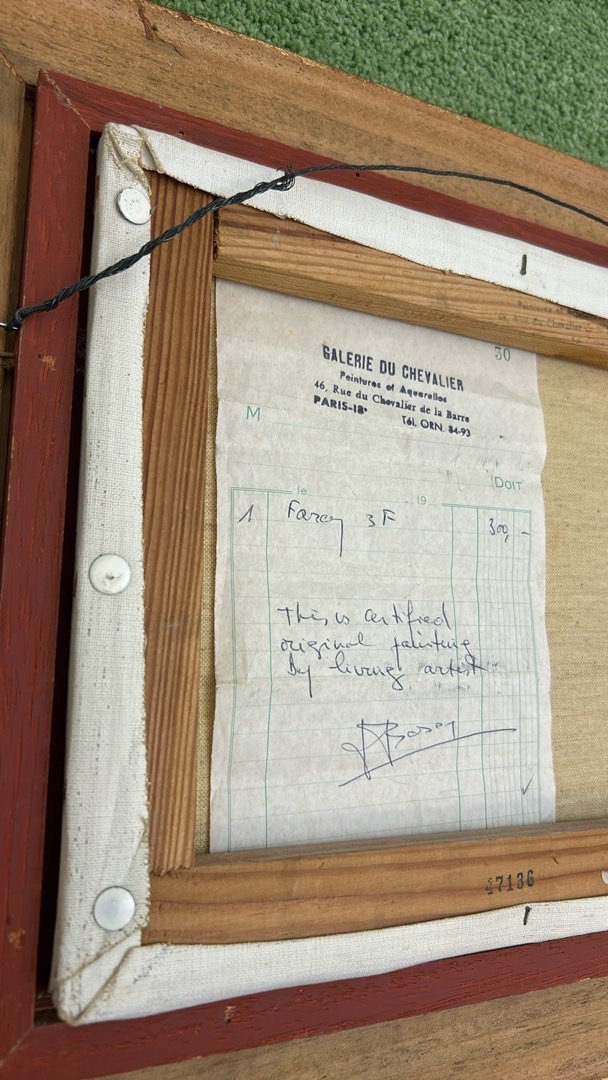 30
GALERIE DU CHEVALIER
Peintures et Aquarelles
46, Rue du Chevalier de la Barre
PARIS-18e Tél. ORN. 84-93
M
DOIT
le 19
1 3F 300, -
This is certified
original painting
by living artist
47136